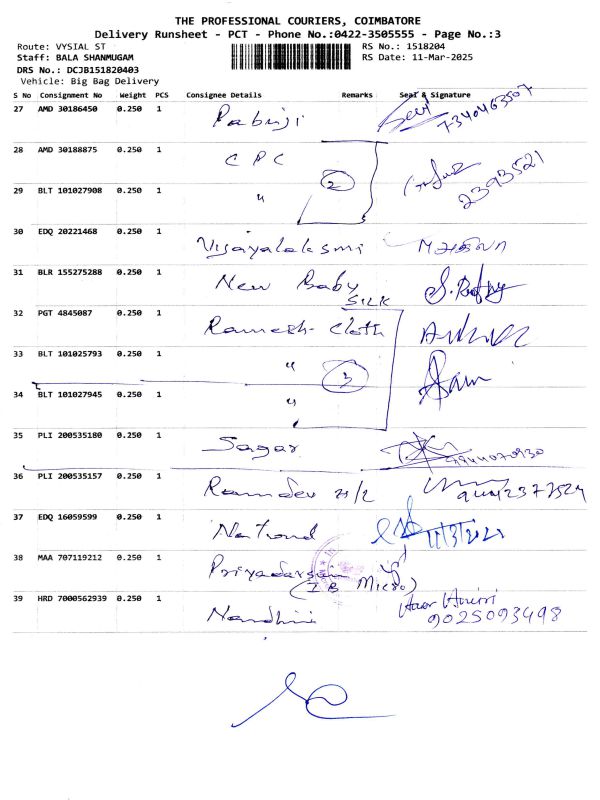 THE PROFESSIONAL COURIERS, COIMBATORE
Delivery Runsheet - PCT - Phone No.:0422-3505555 - Page No.:3
Route: VYSIAL ST RS No.: 1518204
Staff: BALA SHANMUGAM RS Date: 11-Mar-2025
DRS No.: DCJB151820403
Vehicle: Big Bag Delivery
S No Consignment No Weight PCS Consignee Details Remarks Seal & Signature
27 AMD 30186450 0.250 1 Pabiji 7340463507
28 AMD 30188875 0.250 1 CPC
2 2393521
29 BLT 101027908 0.250 1 "
30 EDQ 20221468 0.250 1 Vijayalaksmi
31 BLR 155275288 0.250 1 New Baby
SILK
32 PGT 4845087 0.250 1 Ramesh Cloth
33 BLT 101025793 0.250 1 "
3
34 BLT 101027945 0.250 1 "
35 PLI 200535180 0.250 1 Sagar
36 PLI 200535157 0.250 1 Ramdev 21/2
37 EDQ 16059599 0.250 1 National
38 MAA 707119212 0.250 1 Priyadarsan
(I.B Micro)
39 HRD 7000562939 0.250 1 Nandhini
9025093498